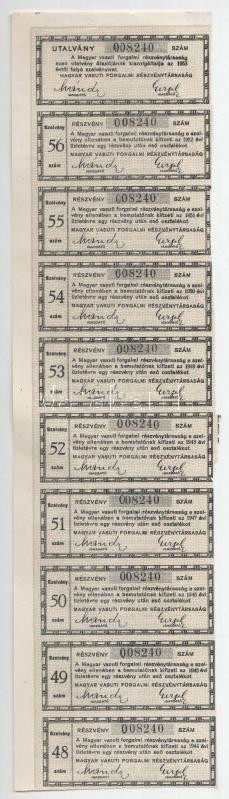 UTALVÁNY 008240 SZÁM
A Magyar vasuti forgalmi részvénytársaság
ezen utalvány átadójának kiszolgáltatja az 1953
évtől folyó szelvényivet.
MAGYAR VASUTI FORGALMI RÉSZVÉNYTÁRSASÁG
IGAZGATÓ IGAZGATÓ
Szelvény 56 szám
RÉSZVÉNY 008240 SZÁM
A Magyar vasuti forgalmi részvénytársaság e szel-
vény ellenében a bemutatónak kifizeti az 1952 évi
üzletévre egy részvény után eső osztalékot
MAGYAR VASUTI FORGALMI RÉSZVÉNYTÁRSASÁG
IGAZGATÓ IGAZGATÓ
Szelvény 55 szám
RÉSZVÉNY 008240 SZÁM
A Magyar vasuti forgalmi részvénytársaság e szel-
vény ellenében a bemutatónak kifizeti az 1951 évi
üzletévre egy részvény után eső osztalékot
MAGYAR VASUTI FORGALMI RÉSZVÉNYTÁRSASÁG
IGAZGATÓ IGAZGATÓ
Szelvény 54 szám
RÉSZVÉNY 008240 SZÁM
A Magyar vasuti forgalmi részvénytársaság e szel-
vény ellenében a bemutatónak kifizeti az 1950 évi
üzletévre egy részvény után eső osztalékot
MAGYAR VASUTI FORGALMI RÉSZVÉNYTÁRSASÁG
IGAZGATÓ IGAZGATÓ
Szelvény 53 szám
RÉSZVÉNY 008240 SZÁM
A Magyar vasuti forgalmi részvénytársaság e szel-
vény ellenében a bemutatónak kifizeti az 1949 évi
üzletévre egy részvény után eső osztalékot
MAGYAR VASUTI FORGALMI RÉSZVÉNYTÁRSASÁG
IGAZGATÓ IGAZGATÓ
Szelvény 52 szám
RÉSZVÉNY 008240 SZÁM
A Magyar vasuti forgalmi részvénytársaság e szel-
vény ellenében a bemutatónak kifizeti az 1948 évi
üzletévre egy részvény után eső osztalékot
MAGYAR VASUTI FORGALMI RÉSZVÉNYTÁRSASÁG
IGAZGATÓ IGAZGATÓ
Szelvény 51 szám
RÉSZVÉNY 008240 SZÁM
A Magyar vasuti forgalmi részvénytársaság e szel-
vény ellenében a bemutatónak kifizeti az 1947 évi
üzletévre egy részvény után eső osztalékot
MAGYAR VASUTI FORGALMI RÉSZVÉNYTÁRSASÁG
IGAZGATÓ IGAZGATÓ
Szelvény 50 szám
RÉSZVÉNY 008240 SZÁM
A Magyar vasuti forgalmi részvénytársaság e szel-
vény ellenében a bemutatónak kifizeti az 1946 évi
üzletévre egy részvény után eső osztalékot
MAGYAR VASUTI FORGALMI RÉSZVÉNYTÁRSASÁG
IGAZGATÓ IGAZGATÓ
Szelvény 49 szám
RÉSZVÉNY 008240 SZÁM
A Magyar vasuti forgalmi részvénytársaság e szel-
vény ellenében a bemutatónak kifizeti az 1945 évi
üzletévre egy részvény után eső osztalékot
MAGYAR VASUTI FORGALMI RÉSZVÉNYTÁRSASÁG
IGAZGATÓ IGAZGATÓ
Szelvény 48 szám
RÉSZVÉNY 008240 SZÁM
A Magyar vasuti forgalmi részvénytársaság e szel-
vény ellenében a bemutatónak kifizeti az 1944 évi
üzletévre egy részvény után eső osztalékot
MAGYAR VASUTI FORGALMI RÉSZVÉNYTÁRSASÁG
IGAZGATÓ IGAZGATÓ